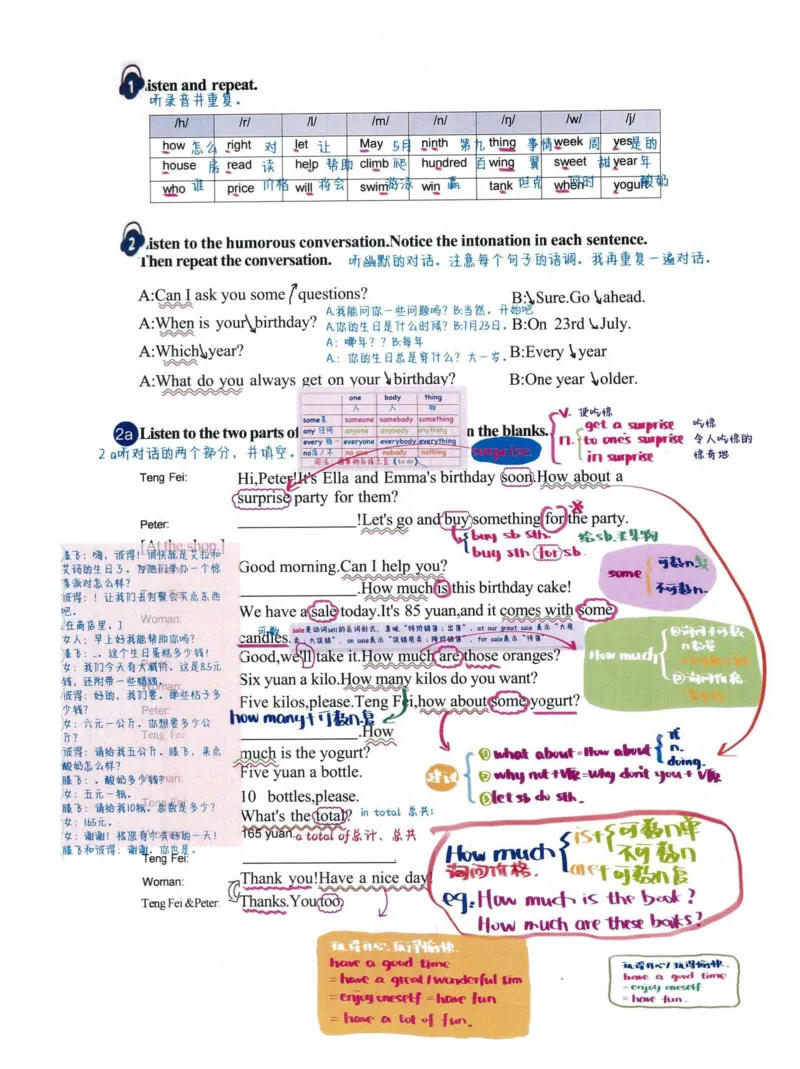 1 Listen and repeat.
听录音并重复。
/h/ /r/ /l/ /m/ /n/ /ŋ/ /w/ /j/
how 怎么 right 对 let 让 May 5月 ninth 第九 thing 事情 week 周 yes 是的
house 房 read 读 help 帮助 climb 爬 hundred 百 wing 翼 sweet 甜 year 年
who 谁 price 价格 will 将会 swim 游泳 win 赢 tank 坦克 when 何时 yogurt 酸奶
2 Listen to the humorous conversation.Notice the intonation in each sentence.
Then repeat the conversation. 听幽默的对话。注意每个句子的语调。我再重复一遍对话。
A:Can I ask you some questions? B: Sure.Go ahead.
A.我能问你一些问题吗? B:当然。开始吧
A:When is your birthday? A.你的生日是什么时候? B:7月23日。 B:On 23rd July.
A: 哪年?? B:每年
A:Which year? A.: 你的生日总是穿什么? 大一岁。 B:Every year
A:What do you always get on your birthday? B:One year older.
one body thing
人 人 物
some某 someone somebody something
any 任何 anyone anybody anything
every 每一 everyone everybody everything
no没/不 no one nobody nothing
(to do)
2a Listen to the two parts of n the blanks.
2a听对话的两个部分,并填空。
surprise
v. 使吃惊
n. get a surprise 吃惊
to one's surprise 令人吃惊的
in surprise 惊奇地
Teng Fei: Hi,Peter!It's Ella and Emma's birthday soon.How about a
surprise party for them?
Peter: !Let's go and buy something for the party.
buy sb sth. 给sb.买某物
buy sth for sb.
[At the shop.]
Good morning.Can I help you?
.How much is this birthday cake!
Woman: We have a sale today.It's 85 yuan,and it comes with some
可数
candles.
sale是动词sell的名词形式,意味“特价销售;出售”,at our great sale 表示“大甩
卖,大促销”,on sale表示“促销甩卖;特价销售”,for sale表示“待售”
some 可数n.复
不可数n.
Good,we'll take it.How much are those oranges?
Six yuan a kilo.How many kilos do you want?
Five kilos,please.Teng Fei,how about some yogurt?
how many+可数n.复
.How
much is the yogurt?
Five yuan a bottle.
10 bottles,please.
What's the total? in total 总共;
165 yuan. a total of总计、总共
How much
①询问不可数
n数量
②询问价格
建议
① what about=How about 
n.
doing.
② why not+V原=why don't you + V原
③ let sb do sth.
腾飞:嗨,彼得!很快就是艾拉和
艾玛的生日了。为他们举办一个惊
喜派对怎么样?
彼得:!让我们去为聚会买点东西
吧。
[在商店里。]
女人:早上好我能帮助你吗?
腾飞:。这个生日蛋糕多少钱!
女:我们今天有大减价。这是85元
钱,还附带一些蜡烛。
彼得:好的,我们要。那些桔子多
少钱?
女:六元一公斤。你想要多少公
斤?
彼得:请给我五公斤。腾飞,来点
酸奶怎么样?
腾飞:。酸奶多少钱?
女:五元一瓶。
腾飞:请给我10瓶。总数是多少?
女:165元。
女:谢谢!祝您有个美好的一天!
腾飞和彼得:谢谢。你也是。
Teng Fei: .
Woman: Thank you!Have a nice day!
Teng Fei &Peter: Thanks.You too.
How much
询问价格.
is+可数n单
不可数n
are+可数n复
eg. How much is the book?
How much are these books?
玩得开心.玩得愉快.
have a good time
= have a great/wonderful tim
= enjoy oneself = have fun
= have a lot of fun.
玩得开心/玩得愉快.
have a good time
= enjoy oneself
= have fun.